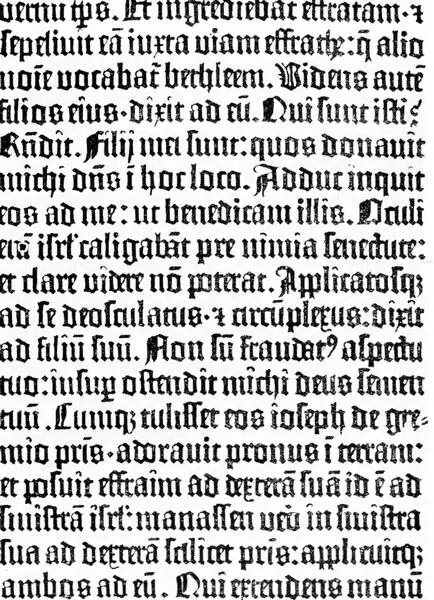 vernū tp̄s. Et ingrediebar effratam·⁊
sepeliui eā iuxta viam effrathe: q̄ alio
noīe vocabat̄ bethleem. Videns autē
filios eius·dixit ad eū. Qui sunt isti?
Rn̄dit. Filij mei sunt: quos donauit
michi dn̄s ī hoc loco. Adduc inquit
eos ad me: ut benedicam illis. Oculi
enī isrl' caligabāt pre nimia senectute:
et clare videre nō poterat. Applicatosqꝫ
ad se deosculatus·⁊ circūplexus: dixit
ad filiū suū. Non sū fraudatꝰ aspectu
tuo: insuꝑ ostendit michi deus semen
tuū. Cumqꝫ tulisset eos ioseph de gre-
mio pr̄is·adorauit pronus ī terram:
et posuit effraim ad dexterā suā id ē ad
sinistrā isrl': manassen vero in sinistra
sua ad dexterā scilicet pr̄is: applicuitqꝫ
ambos ad eū. Qui extendens manū